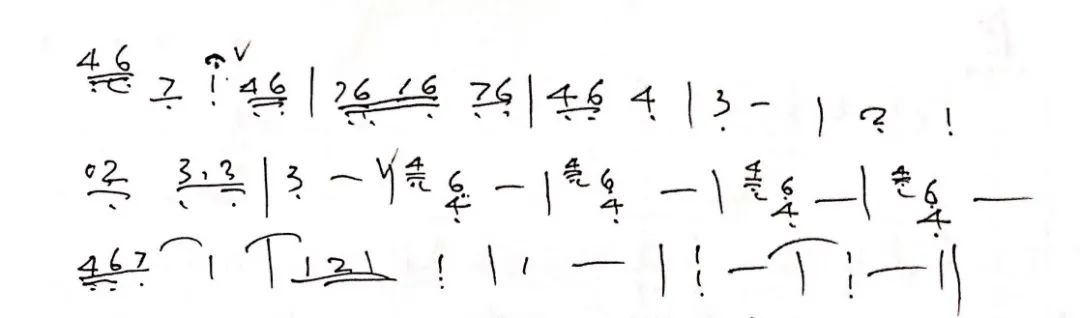 46 7 1 46 | 76 16 76 | 46 4 | 3 - | 2 1
02 3 3 | 3 - | 4 6 4 - | 4 6 4 - | 4 6 4 - | 4 6 4 -
467 1 | 121 1 | 1 - | 1 - | 1 - ||